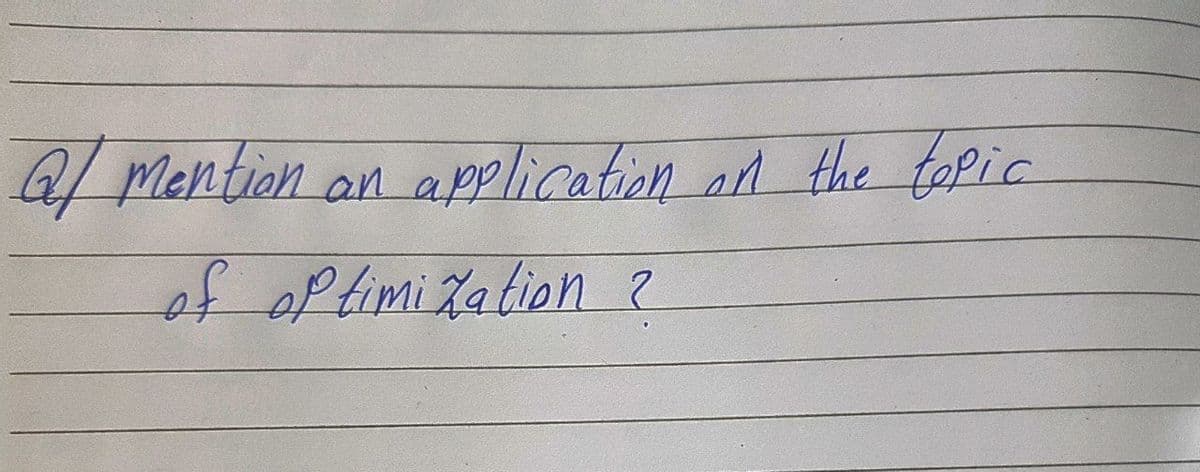 Q/ Mention an application on the topic
of optimization ?